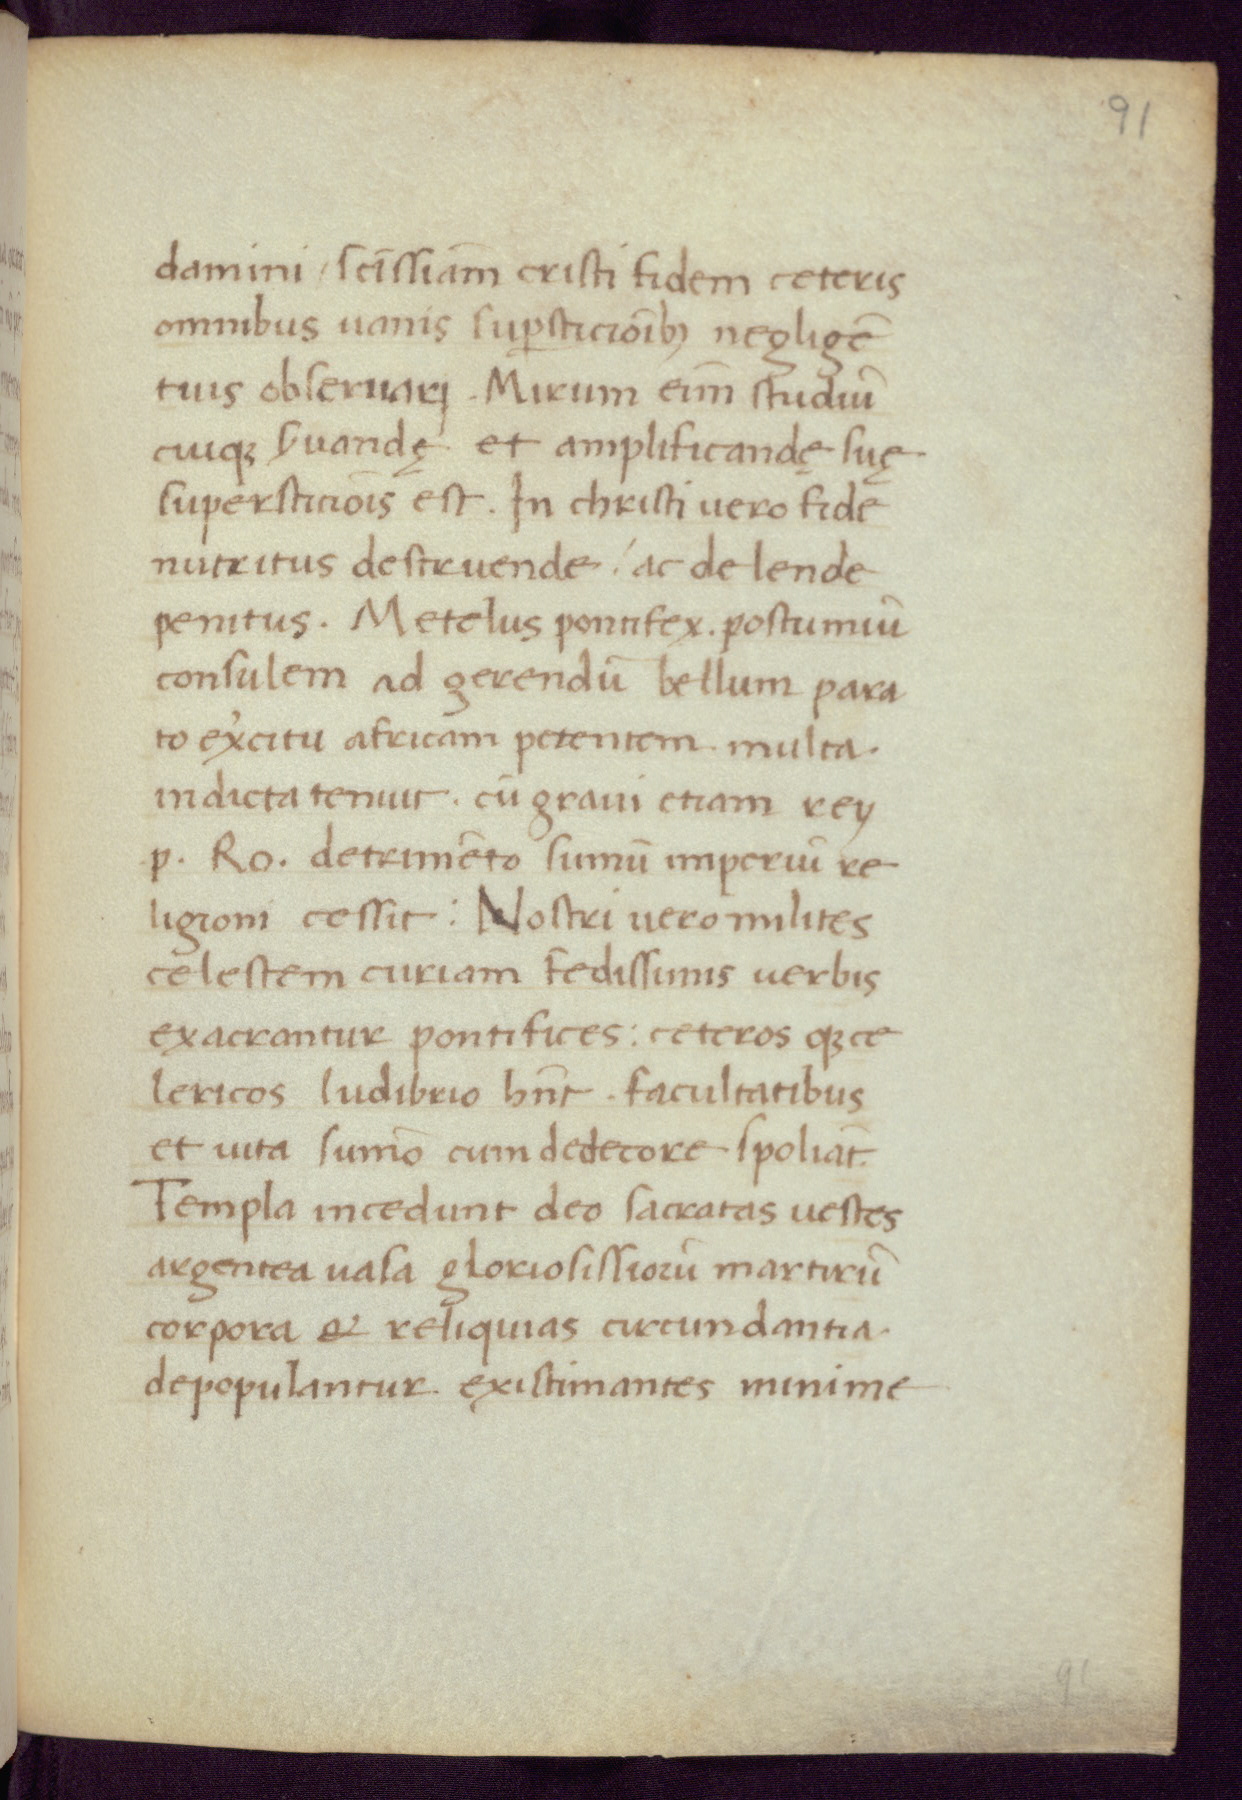 91
damini / scīssiām cristi fidem ceteris
omnibus uanis sup̲sticiōıbꝫ negligē
tius obseruari . Mirum eım̄ studiū
cuiqꝫ ẜuandę et amplificandę suę
supersticiōis est . In christi uero fide
nutritus destruende / ac delende
penitus . Metelus pontifex . postumiū
consulem ad gerendū bellum para
to ex̓citu africam petentem . multa .
indicta tenuit . cū graui etiam rey
p . Ro . detrimēto sumū imperiū re
ligioni cessit : Nostri uero milites
celestem curiam fedissimis uerbis
exacrantur pontifices : ceteros qꝫ ce
lericos ludibrio hn̄t . facultatibus
et uita sumō cum dedecore spoliāt .
Templa incedunt deo sacratas uestes
argentea uasa gloriosissiorū martirū
corpora & reliquias circundantia .
depopulantur . existimantes minime
91